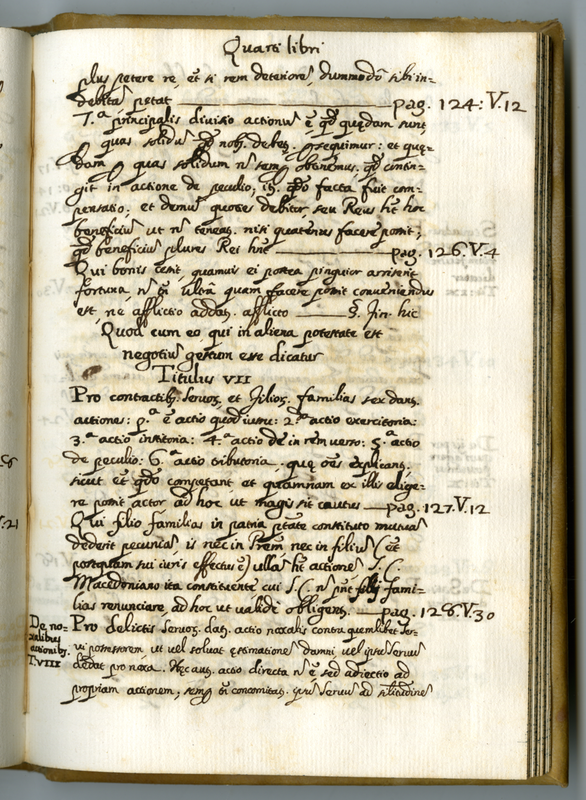 Quarti libri
plus petere re, et si rem deteriorē, dummodo sibi in-
debitā petat —— pag. 124: V. 12
7.ª principalis diuisio actionū ē qd quędam sunt
quas solidū qd nob. debet. psequimur: et quę-
dam quas solidum n semp obtinemus. qd contin-
git in actione de peculio; it. qdo facta fuit com-
pensatio. et demū quoties debitor seu Reus ht hoc
beneficiū ut n teneat. nisi quatenus facere possit;
qd beneficiū plures Rei hnt —— pag. 126. V. 4
Qui bonis cessit, quamuis ei postea pinguior arriserit
fortuna n tn ultra quam facere possit conueniendus
est, ne afflictio addat. afflicto —— §. fin. hic
Quod cum eo qui in aliena potestate est
negotiū gestum esse dicatur
Titulus VII
Pro contractib. Seruor. et filior. familias sex dant.
actiones: p.ª ē actio quod iussu: 2.ª actio exercitoria:
3.ª actio institoria: 4.ª actio de in rem uerso: 5.ª actio
de peculio: 6.ª actio tributoria, quę oēs explicant.
sicut et qdo competant et quamnam ex illis elige-
re possit actor ad hoc ut magis sit cautus — pag. 127. V. 12
Qui filio familias in patria ptate constituto mutuā
dederit pecuniā is nec in Prem nec in filiū (et
postquam sui iuris effectus ē) ullā ht actionē S. C.
Macedoniano ita constituente cui S. C. n pnt filij fami-
lias renunciare, ad hoc ut ualide obligent. — pag. 128. V. 30
De no-
xalibus
actionib.
T. VIII
Pro delictis Seruor. dat. actio noxalis contra quemlibet Ser-
ui possessorem ut uel soluat estimationē damni uel ipsū Seruū
dedat pro noxa. Nec aut. actio directa n ē sed adiectio ad
propriam actionem, semp tn concomitat. ipsū Seruū ad